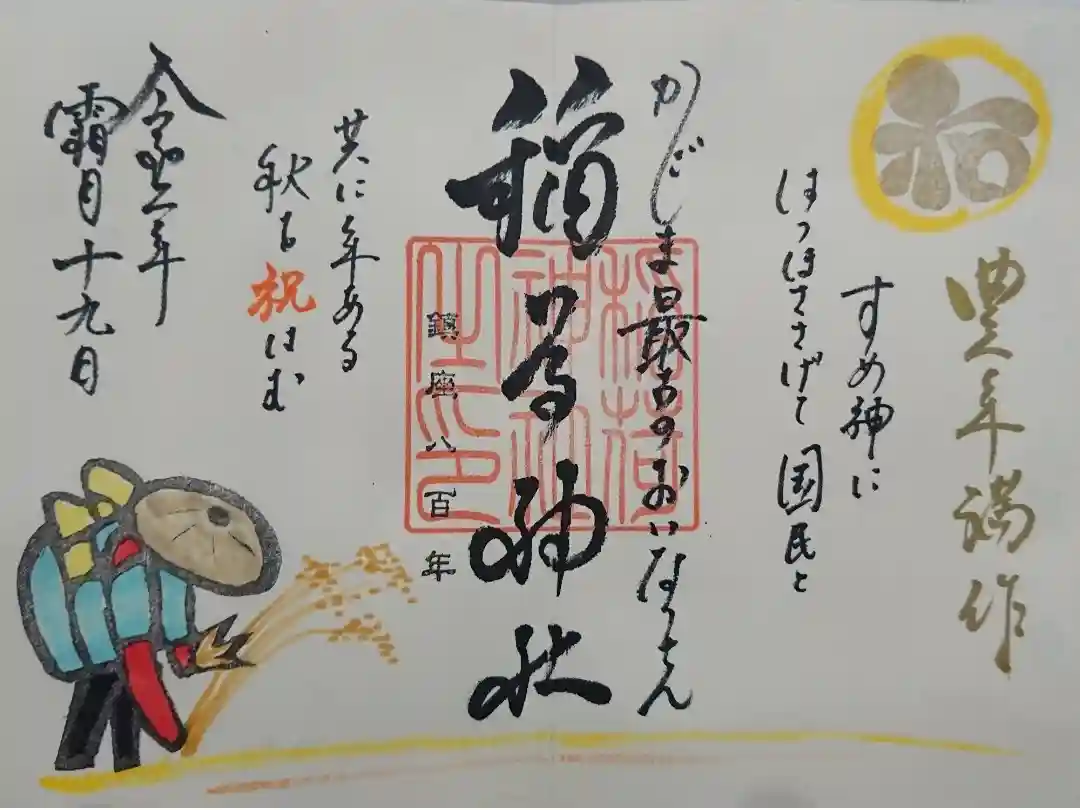 豊年満作
すめ神に
はつほささげて国民と
かごしま最古のおいなりさん
稲荷神社
稲荷
神社
之印
鎮座八百年
共に年ある
秋を祝はむ
令和三年
霜月十九日